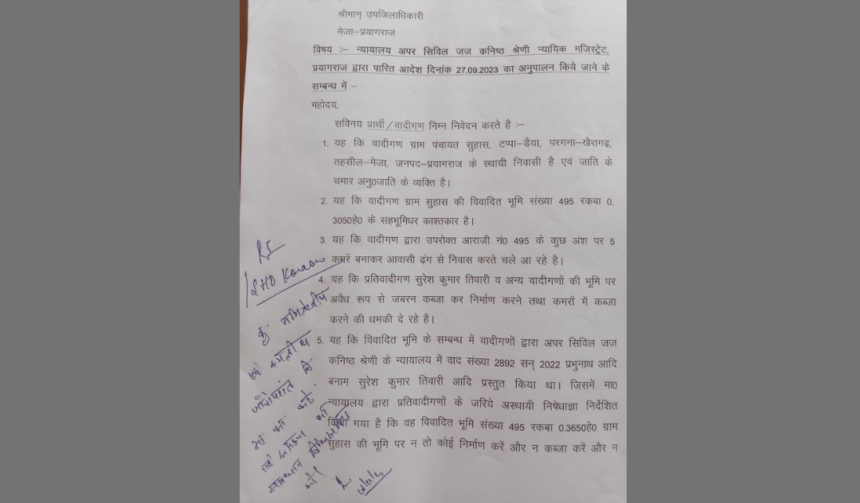 श्रीमान् उपजिलाधिकारी
मेजा–प्रयागराज
विषय :– न्यायालय अपर सिविल जज कनिष्ठ श्रेणी न्यायिक मजिस्ट्रेट,
प्रयागराज द्वारा पारित आदेश दिनांक 27.09.2023 का अनुपालन किये जाने के
सम्बन्ध में –
महोदय,
सविनय प्रार्थी/वादीगण निम्न निवेदन करते है :–
1. यह कि वादीगण ग्राम पंचायत सुहास, टप्पा–डैया, परगना–खैरागढ़,
तहसील–मेजा, जनपद–प्रयागराज के स्थायी निवासी है एवं जाति के
चमार अनु0जाति के व्यक्ति है।
2. यह कि वादीगण ग्राम सुहास की विवादित भूमि संख्या 495 रकबा 0.
3050हे0 के सहभूमिधर काश्तकार है।
3. यह कि वादीगण द्वारा उपरोक्त आराजी नं0 495 के कुछ अंश पर 5
कमरे बनाकर आवासी ढंग से निवास करते चले आ रहे है।
4. यह कि प्रतिवादीगण सुरेश कुमार तिवारी व अन्य वादीगणों की भूमि पर
अवैध रूप से जबरन कब्जा कर निर्माण करने तथा कमरों में कब्जा
करने की धमकी दे रहे है।
5. यह कि विवादित भूमि के सम्बन्ध में वादीगणों द्वारा अपर सिविल जज
कनिष्ठ श्रेणी के न्यायालय में वाद संख्या 2892 सन् 2022 प्रभुनाथ आदि
बनाम सुरेश कुमार तिवारी आदि प्रस्तुत किया था। जिसमें मा0
न्यायालय द्वारा प्रतिवादीगणों के जरिये अस्थायी निषेधाज्ञा निर्देशित
किया गया है कि वह विवादित भूमि संख्या 495 रकबा 0.3650हे0 ग्राम
सुहास की भूमि पर न तो कोई निर्माण करें और न कब्जा करें और न
SHO Koraon